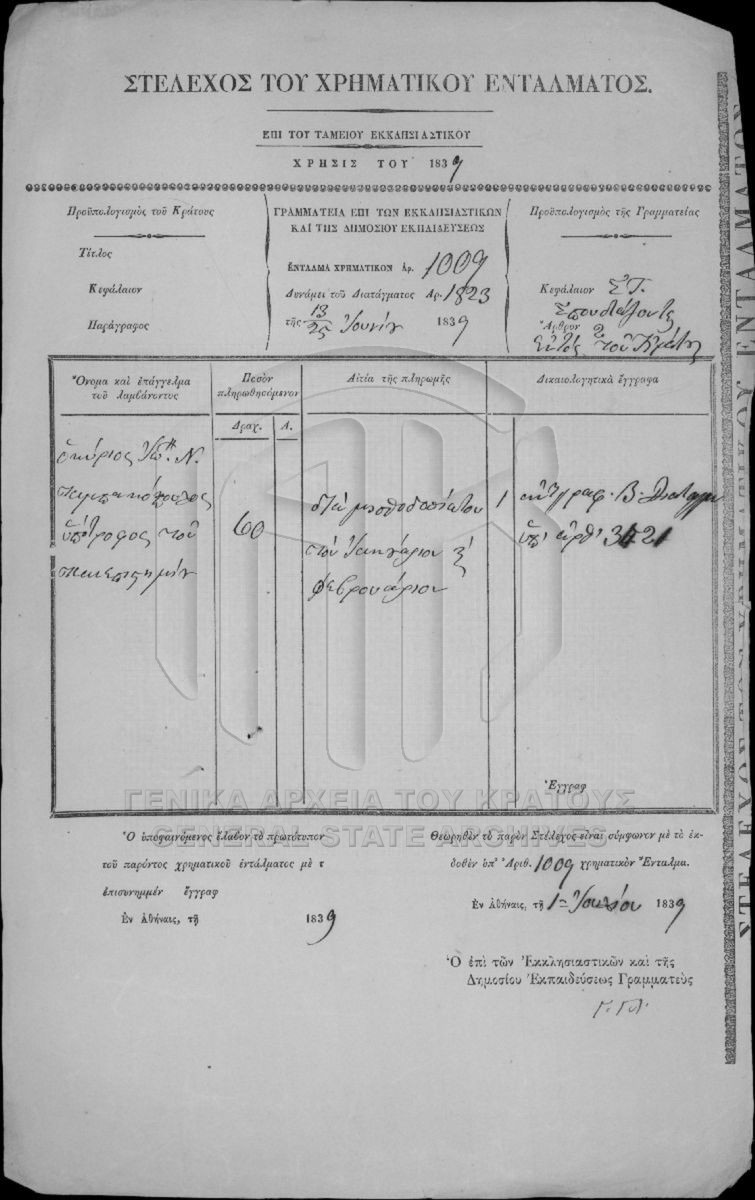 ΣΤΕΛΕΧΟΣ ΤΟΥ ΧΡΗΜΑΤΙΚΟΥ ΕΝΤΑΛΜΑΤΟΣ.
ΕΠΙ ΤΟΥ ΤΑΜΕΙΟΥ ΕΚΚΛΗΣΙΑΣΤΙΚΟΥ
ΧΡΗΣΙΣ ΤΟΥ 1839
Προϋπολογισμὸς τοῦ Κράτους
Τίτλος
Κεφάλαιον
Παράγραφος
ΓΡΑΜΜΑΤΕΙΑ ΕΠΙ ΤΩΝ ΕΚΚΛΗΣΙΑΣΤΙΚΩΝ
ΚΑΙ ΤΗΣ ΔΗΜΟΣΙΟΥ ΕΚΠΑΙΔΕΥΣΕΩΣ
ΕΝΤΑΛΜΑ ΧΡΗΜΑΤΙΚΟΝ Αρ. 1009
Δυνάμει τοῦ Διατάγματος Αρ. 1823
τῆς 13/25 Ἰουνίου 1839
Προϋπολογισμὸς τῆς Γραμματείας
Κεφάλαιον ΣΤ.
Σπουδάζοντες
Ἄρθρον 2
ἐντὸς τοῦ Κράτους
Ὄνομα καὶ ἐπάγγελμα
τοῦ λαμβάνοντος
Ποσὸν
πληρωθησόμενον
Δραχ. Λ.
Αἰτία τῆς πληρωμῆς
Δικαιολογητικὰ ἔγγραφα
ὁ κύριος Ἰω. Ν.
ὑπότροφος τοῦ
60
διὰ μισθοδοσίαν του
τὸν Ἰαννουάριον ξ
Φεβρουάριον
1 ἀντίγραφ. Β. Διατάγμ
ὑπ' ἀρθ'
Ἔγγραφ
ΓΕΝΙΚΑ ΑΡΧΕΙΑ ΤΟΥ ΚΡΑΤΟΥΣ
GENERAL STATE ARCHIVES
Ὁ ὑποφαινόμενος ἔλαβον τὸ πρωτότυπον
τοῦ παρόντος χρηματικοῦ ἐντάλματος μὲ τ
ἐπισυνημμέν ἔγγραφ
Ἐν Ἀθήναις, τῇ 1839
Θεωρηθὲν τὸ παρὸν Στέλεχος εἶναι σύμφωνον μὲ τὸ ἐκ-
δοθὲν ὑπ' Ἀριθ. 1009 χρηματικὸν Ἔνταλμα.
Ἐν Ἀθήναις, τῇ 1 Ἰουλίου 1839
Ὁ ἐπὶ τῶν Ἐκκλησιαστικῶν καὶ τῆς
Δημοσίου Ἐκπαιδεύσεως Γραμματεὺς